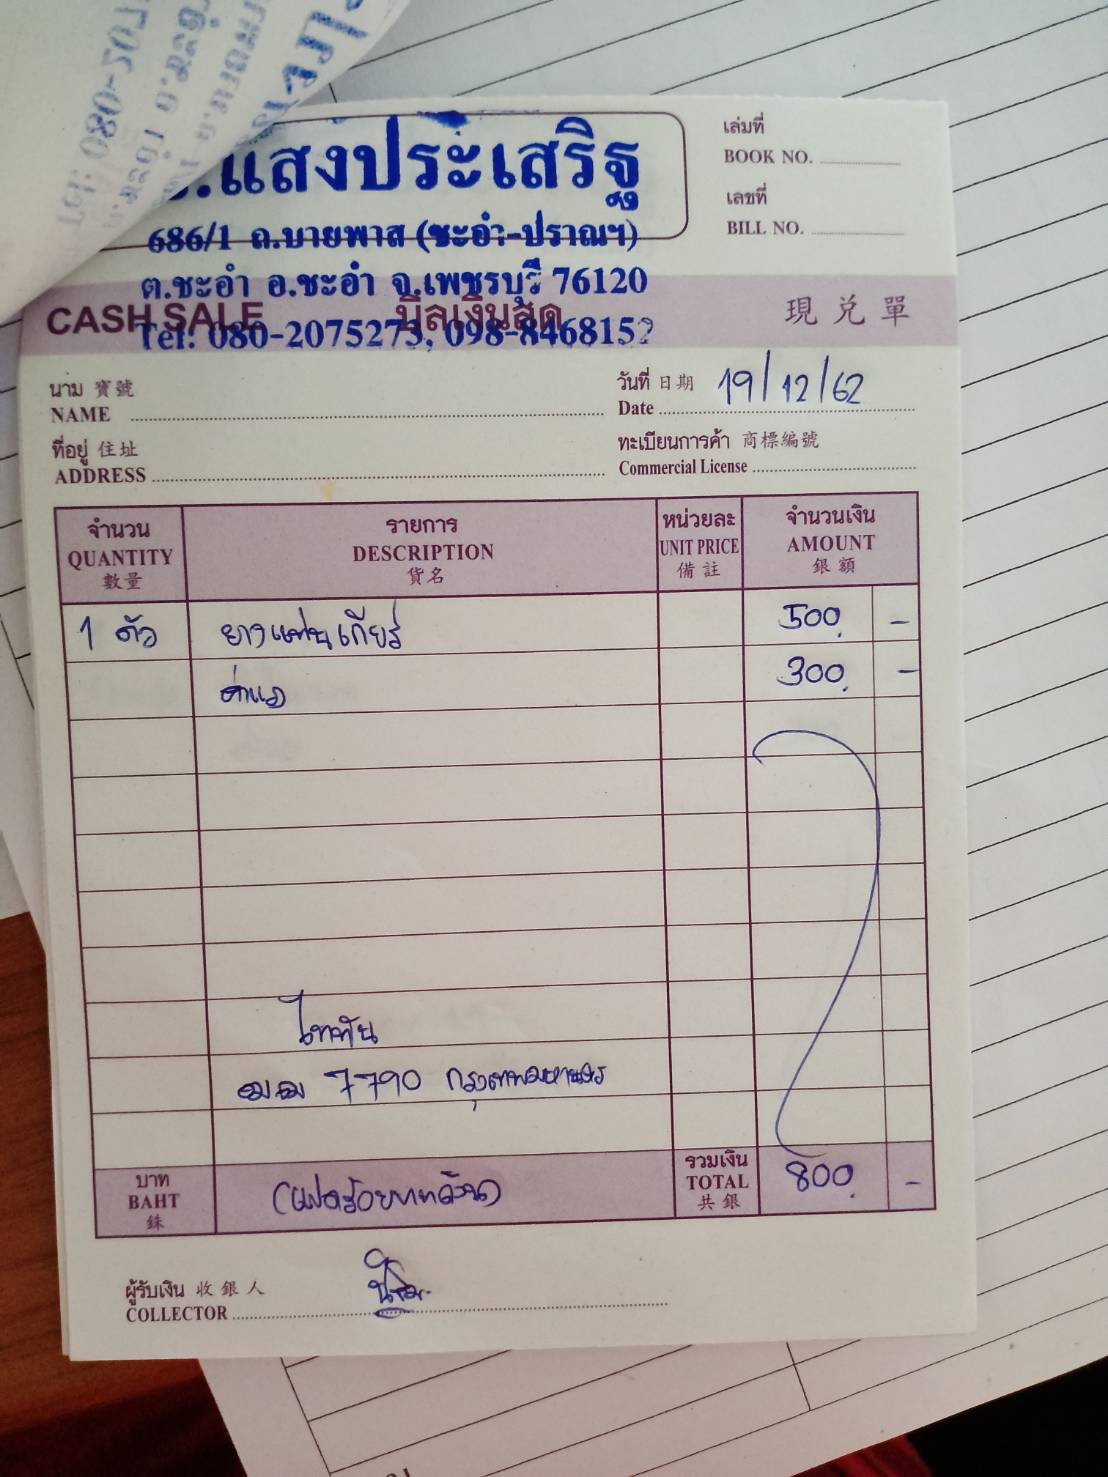 .แสงประเสริฐ
686/1 ถ.บายพาส (ชะอำ-ปราณฯ)
ต.ชะอำ อ.ชะอำ จ.เพชรบุรี 76120
Tel: 080-2075273, 098-8468152
เล่มที่
BOOK NO.
เลขที่
BILL NO.
CASH SALE บิลเงินสด 現兌單
นาม 寶號
NAME
วันที่ 日期
Date 19/12/62
ที่อยู่ 住址
ADDRESS
ทะเบียนการค้า 商標編號
Commercial License
จำนวน รายการ หน่วยละ จำนวนเงิน
QUANTITY DESCRIPTION UNIT PRICE AMOUNT
數量 貨名 備註 銀額
1 ตัว ยางแท่นเกียร์ 500 -
ค่าแรง 300 -
ไททัน
7790 กรุงเทพมหานคร
บาท รวมเงิน
BAHT (แปดร้อยบาทถ้วน) TOTAL 800 -
銖 共銀
ผู้รับเงิน 收銀人
COLLECTOR